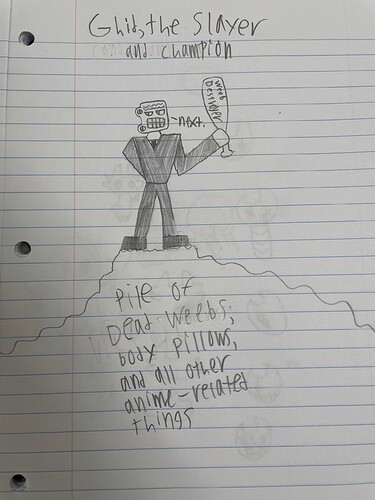 Ghid, the Slayer
and champion
Weeb
Destroyer
next.
Pile of
Dead Weebs,
body pillows,
and all other
anime-related
things